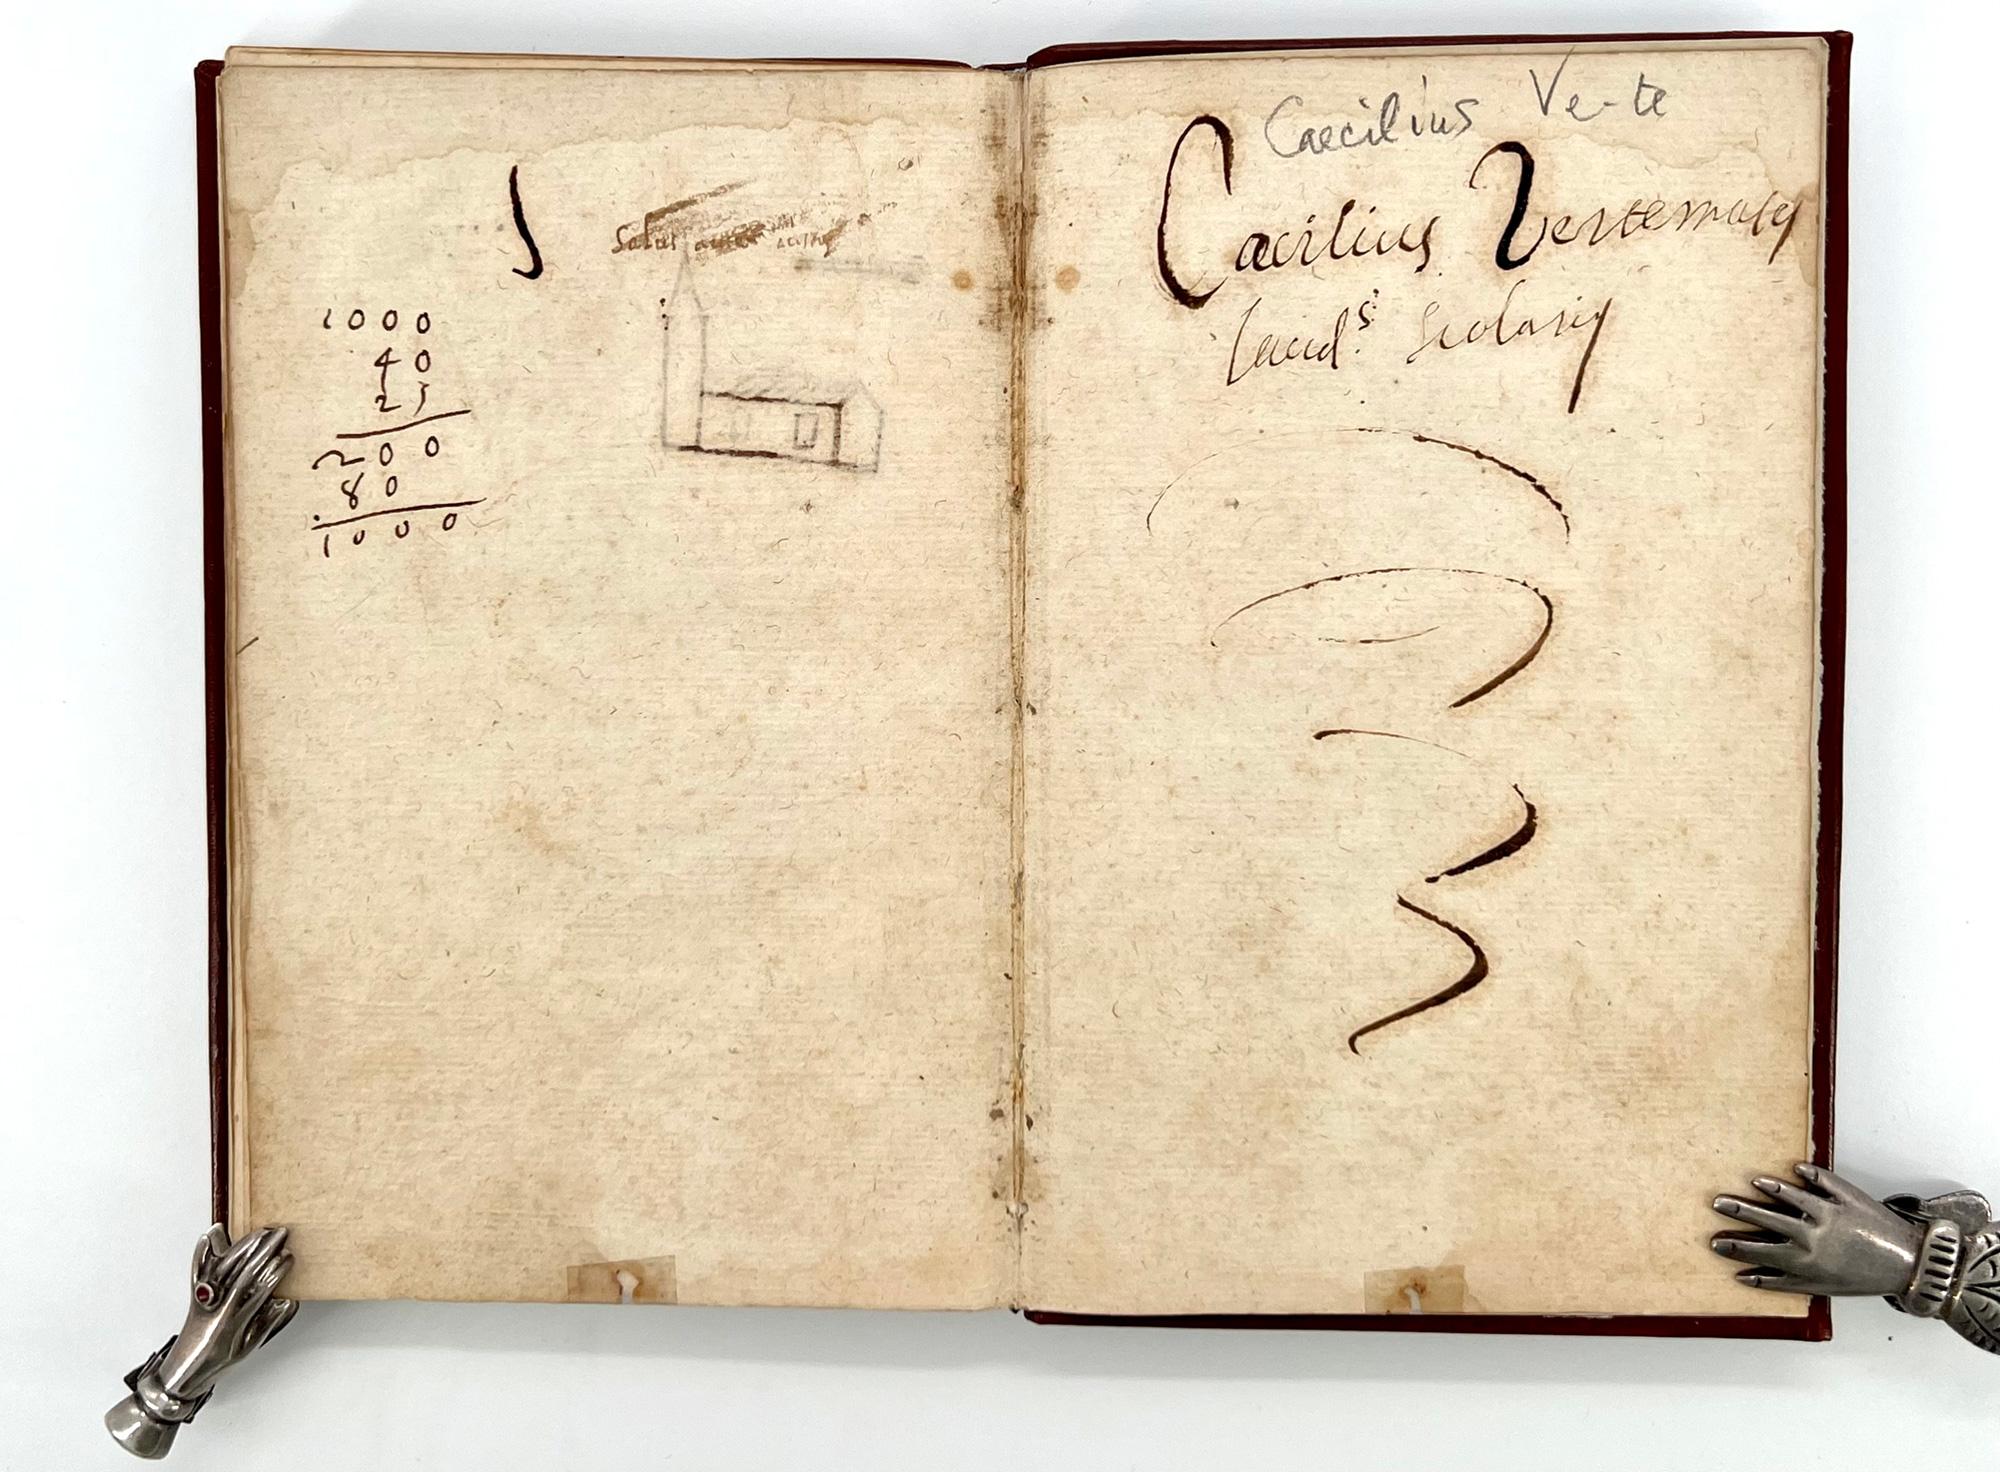 1000
40
25
200
80
1000
Caecilius Ve-te
Caecilius Vertemate
scolaris